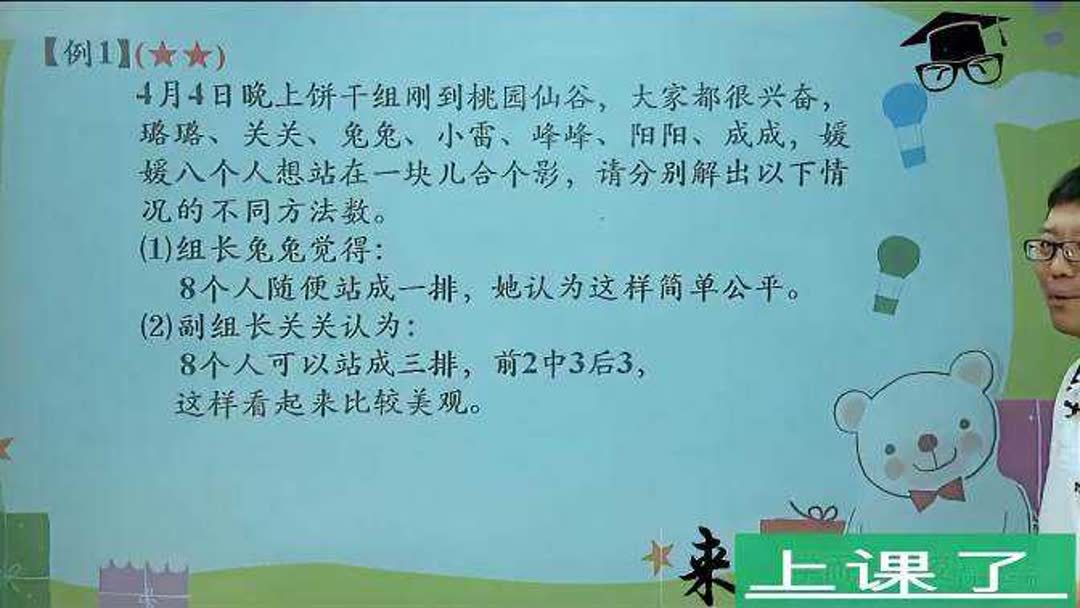 【例1】(★★)
4月4日晚上饼干组刚到桃园仙谷，大家都很兴奋，
璐璐、关关、兔兔、小雷、峰峰、阳阳、成成，媛
媛八个人想站在一块儿合个影，请分别解出以下情
况的不同方法数。
(1)组长兔兔觉得：
8个人随便站成一排，她认为这样简单公平。
(2)副组长关关认为：
8个人可以站成三排，前2中3后3，
这样看起来比较美观。
来
上课了